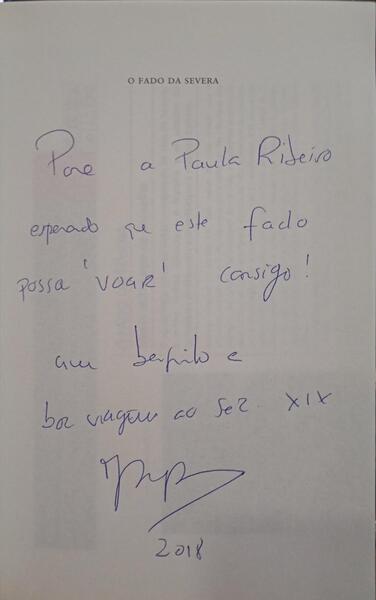 O FADO DA SEVERA
Para a Paula Ribeiro
esperando que este fado
possa 'VOAR' consigo!
um beijinho e
boa viagem ao séc. XIX
2018